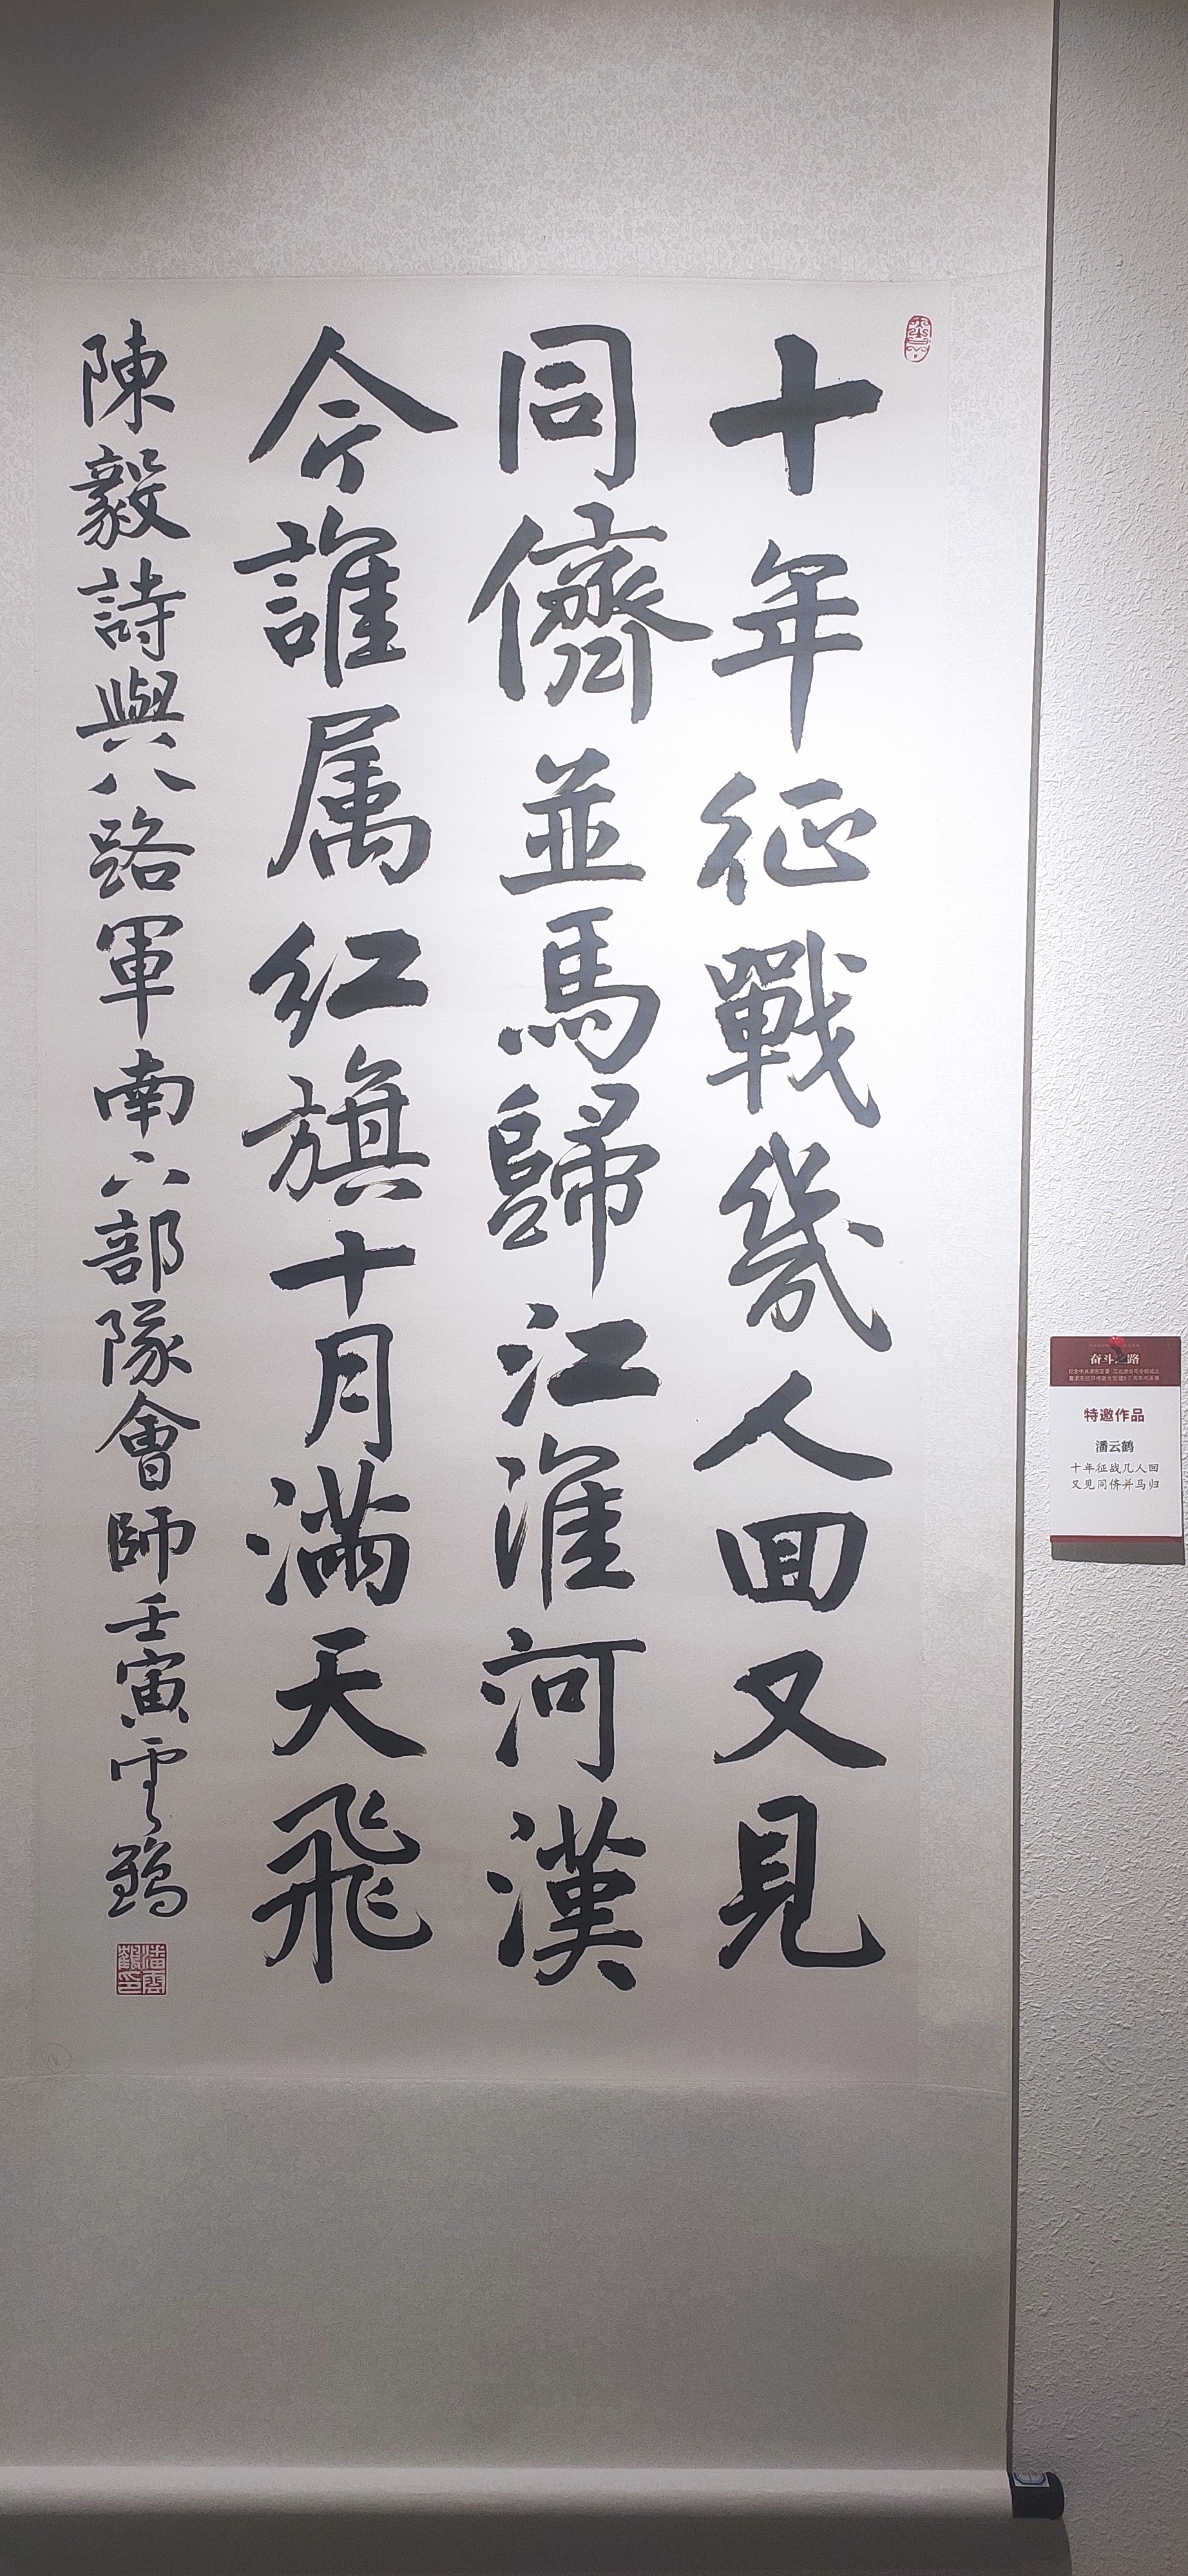 十年征戰幾人回又見
同儕並馬歸江淮河漢
今誰属红旗十月满天飛
陳毅詩與八路軍南下部隊會師壬寅雲鶴
潘雲鶴印
奋斗之路
特邀作品
潘云鹤
十年征战几人回
又见同侪并马归